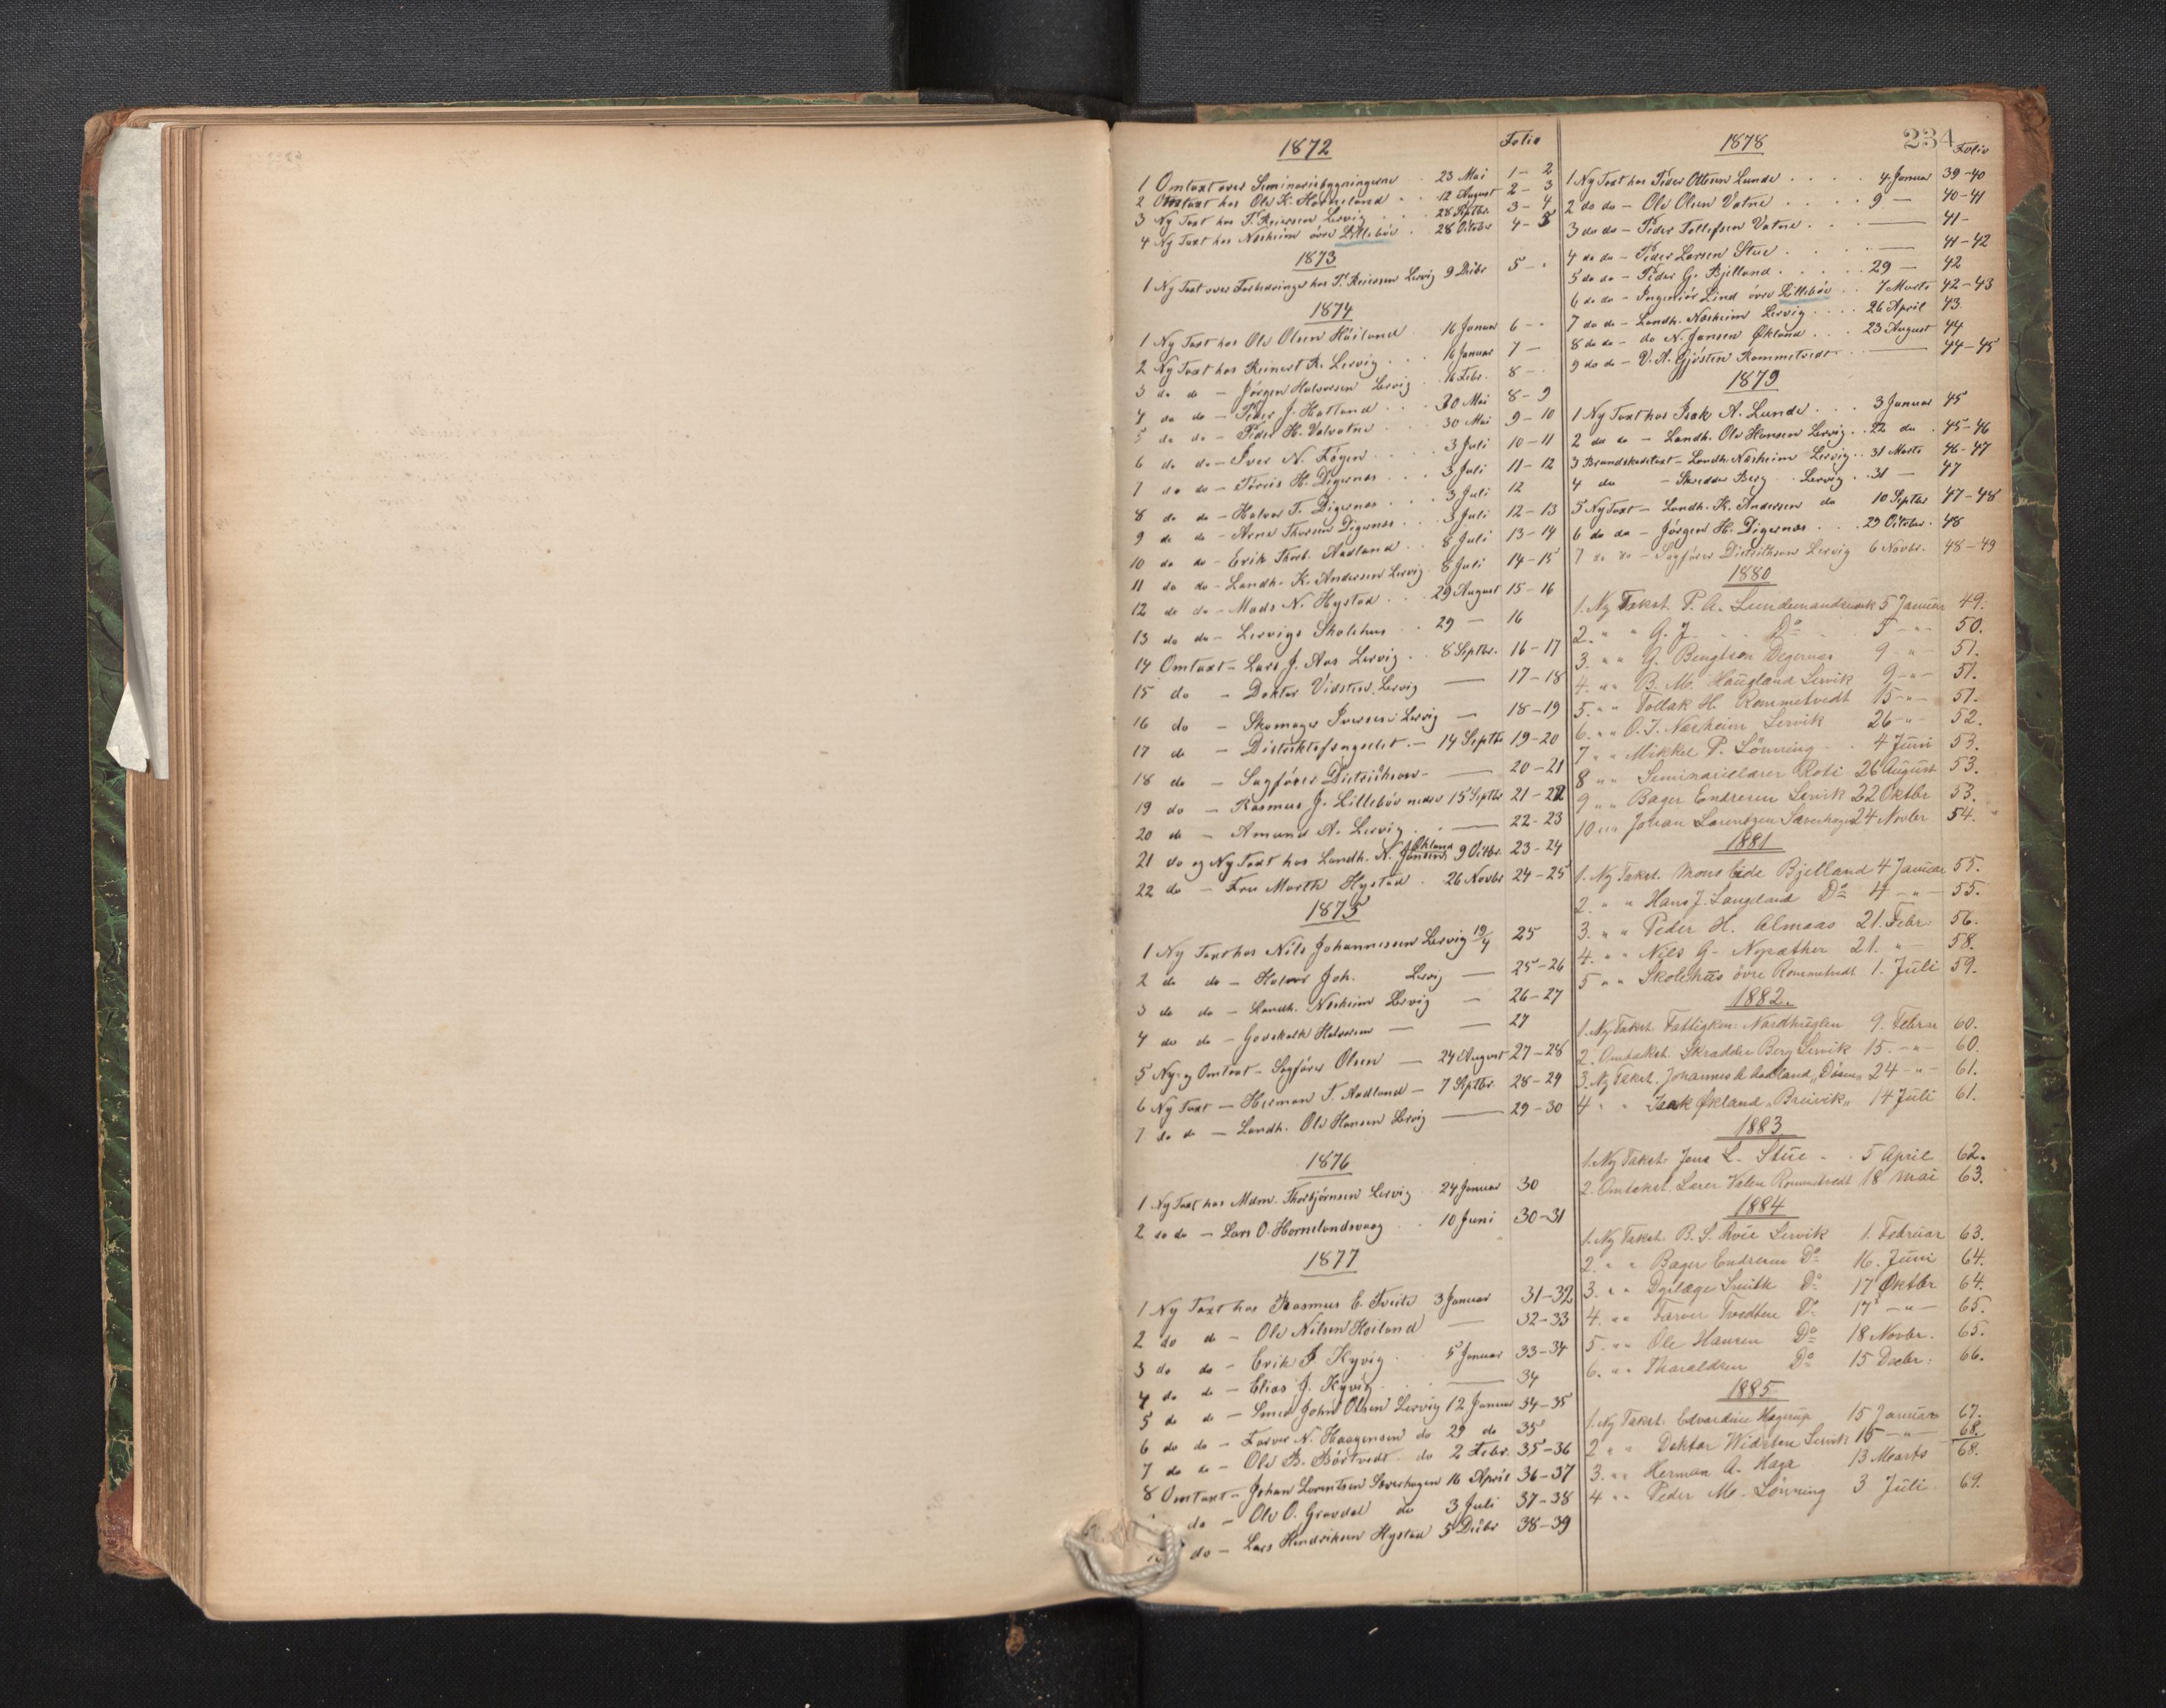 1872 Folio
1 Omtaxt over Seminariebygningerne . 23 Mai 1 - 2
2 Omtaxt hos Ole K. Horneland . . 12 August 2 - 3
3 Ny Taxt hos T. Reiersen Lervig . . 28 Septbr. 3 - 4
4 Ny Taxt hos Næsheim övre Lillebör . 28 Octobr 4 - 5
1873
1 Ny Taxt over Forbedringer hos T. Reiersen Lervig 9 Decbr 5 - "
1874
1 Ny Taxt hos Ole Olsen Höiland 16 Januar 6 - "
2 Ny Taxt hos Reinert R. Lervig . . . 16 Januar 7 -
3 do do - Jörgen Halvorsen Lervig . . 16 Febr. 8 - "
4 do do - Peder J. Hatland . . . 30 Mai 8 - 9
5 do do - Peder H. Valvatne . . . 30 Mai 9 - 10
6 do do - Iver N. Føgen . . . . 3 Juli 10 - 11
7 do do - Törris H. Digernæs . . . 3 Juli 11 - 12
8 do do - Halvor T. Digernæs . . . 3 Juli 12
9 do do - Arne Thorsen Digernæs . . . 3 Juli 12 - 13
10 do do - Erik Thorb. Aadland . . 8 Juli 13 - 14
11 do do - Landh. K. Andersen Lervig . 8 Juli 14 - 15
12 do do - Mads N. Hystad . . . 29 August 15 - 16
13 do do - Lervigs Skolehus . . 29 — 16
14 Omtaxt - Lars J. Aas Lervig . . 8 Septbr. 16 - 17
15 do - Doktor Vidsteen Lervig — 17 - 18
16 do - Skomager Iversen Lervig — 18 - 19
17 do - Distriktsfængselet . — 14 Septbr 19 - 20
18 do - Sagförer Dietrichson - — 20 - 21
19 do - Rasmus J. Lillebör nedre 15 Septbr 21 - 22
20 do - Amund A. Lervig . . — 22 - 23
21 do og Ny Taxt hos Landh. N. Jansen Økland 9 Octbr. 23 - 24
22 do - Fru Marth Hystad . 26 Novbr 24 - 25
1875
1 Ny Taxt hos Nils Johannessen Lervig 19/4 25
2 do do - Halvor Joh. Lervig — 25 - 26
3 do do - Landh. Næsheim Lervig — 26 - 27
4 do do - Godskalk Halvorsen — — 27
5 Ny- og Omtaxt - Sagförer Olsen — 24 August 27 - 28
6 Ny Taxt — Herman T. Aadland — 7 Septbr. 28 - 29
7 do do — Landh. Ole Hansen Lervig — 29 - 30
1876
1 Ny Taxt hos Mdm. Thorbjörnsen Lervig . 24 Januar 30
2 do do — Lars O. Hornelandsvaag . . 10 Juni 30 - 31
1877
1 Ny Taxt hos Rasmus E. Tveite 3 Januar 31 - 32
2 do do - Ole Nilsen Høiland — 32 - 33
3 do do - Erik J. Kyvig . . 5 Januar 33 - 34
4 do do - Elias J. Kyvig . . — 34
5 do do - Smed John Olsen Lervig 12 Januar 34 - 35
6 do do - Farver N. Haagensen do 29 do 35
7 do do - Ole B. Börtvedt . do 2 Febr. 35 - 36
8 Omtaxt - Johan Lorentsen Sæverhagen 16 April 36 - 37
do - Ole O. Gravdal do 3 Juli 37 - 38
do - Lars Hendriksen Hystad 5 Decbr 38 - 39
234
1878 Folio
1 Ny Taxt hos Peder Ottesen Lunde . . . . 4 Januar 39 - 40
2 do do - Ole Olsen Vatne . . . . . 9 — 40 - 41
3 do do - Peder Tollefsen Vatne . . . — 41 -
4 do do - Peder Larsen Stue . . . — 41 - 42
5 do do - Peder G. Bjelland . . . . . 29 — 42
6 do do - Ingeniör Lind övre Lillebör . . 7 Marts 42 - 43
7 do do - Landh. Næsheim Lervig . . . . 26 April 43
8 do do - do N. Jansen Økland . . . . 23 August 44
9 do do - V. A. Gjösten Rommetvedt . . — 44 - 45
1879
1 Ny Taxt hos Isak A. Lunde . . . 3 Januar 45
2 do do - Landh. Ole Hansen Lervig . . 22 do . 45 - 46
3 Brandskadetaxt - Landh. Næsheim Lervig . . 31 Marts 46 - 47
4 do - Skredder Berg . . Lervig . 31 — 47
5 Ny Taxt - Landh. K. Andersen do 10 Septbr 47 - 48
6 do do - Jörgen H. Digernæs . . . 29 Octobr. 48
7 do do - Sagförer Dietrichson Lervig 6 Novbr. 48 - 49
1880
1. Ny Takst. P. A. 5 Januar 49.
2. " " G. J. . . Do 5 - " - 50.
3. " " G. Bengtson Degernæs 9 - " - 51.
4. " " B. M. Haugland Lervik 9 - " - 51.
5. " " Tollak H. Rommetvedt 15 - " - 51.
6. " " O. T. Næsheim Lervik 26 - " - 52.
7 " " Mikkel P. Lönning . . 4 Juni 53.
8 " " Seminarielærer Roti 26 August 53.
9 " " Bager Endresen Lervik 22 Oktbr 53.
10 " " Johan Lorentzen Sæverhagen 24 Novbr 54.
1881
1. Ny Takst. Mons Eide Bjelland 4 Januar 55.
2. " " Hans J. Langeland Do 4 - " - 55.
3. " " Peder H. Almaas 21. Febr. 56.
4. " " Niels G. Nysæther 21. " - 58.
5 " " Skolehus övre Rommetvedt 1. Juli 59.
1882.
1. Ny Takst. Fattigkom: Nordhuglen 9. Febru 60.
2. Omtakst. Skrædder Berg Lervik 15. - " - 60.
3. Ny Takst. Johannes A Aadland, 24 - " - 61.
4 " " Isak Økland "Breivik" 14 Juli 61.
1883.
1. Ny Takst. Jens L. Stue - . 5 April 62.
2. Omtakst. Lærer Valen Rommetvedt 18 Mai 63.
1884
1. Ny Takst. B. S. Lervik 1. Februar 63.
2. " " Bager Endresen Do 16. Juni 64.
3. " " Dyrlæge Smith Do 17 Oktbr 64.
4. " " Farver Tvedten Do 17 - " - 65.
5. " " Ole Hansen Do 18 Novbr. 65.
6. " " Tharaldsen Do 15 Decbr: 66.
1885
1. Ny Takst. Edvardine Hagerup 15 Januar 67.
2 " " Doktor Widsteen Lervik 15 - " - 68.
3. " " Herman A. Haga 13 Marts 68.
4 " " Peder M. Lönning 3 Juli 69.